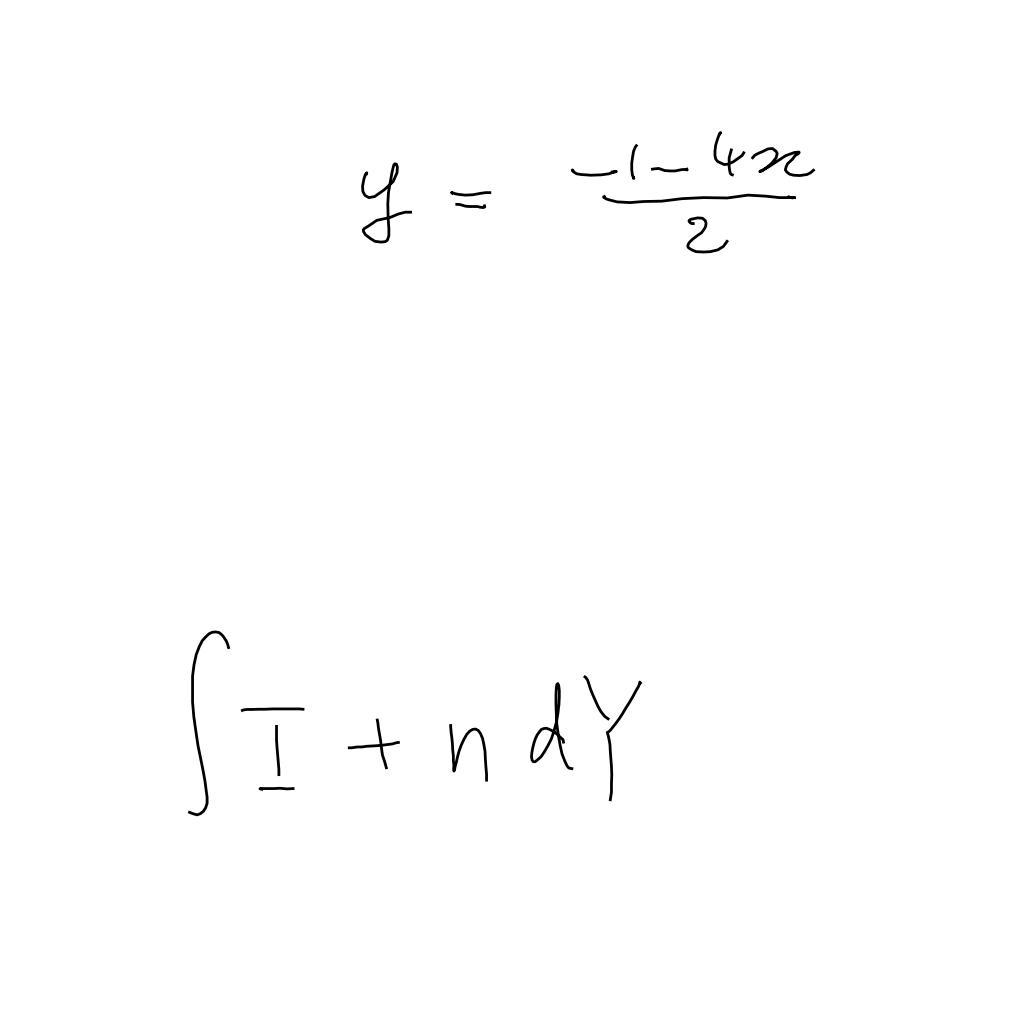 y = \frac{-1-4x}{2}
\int I + n dY